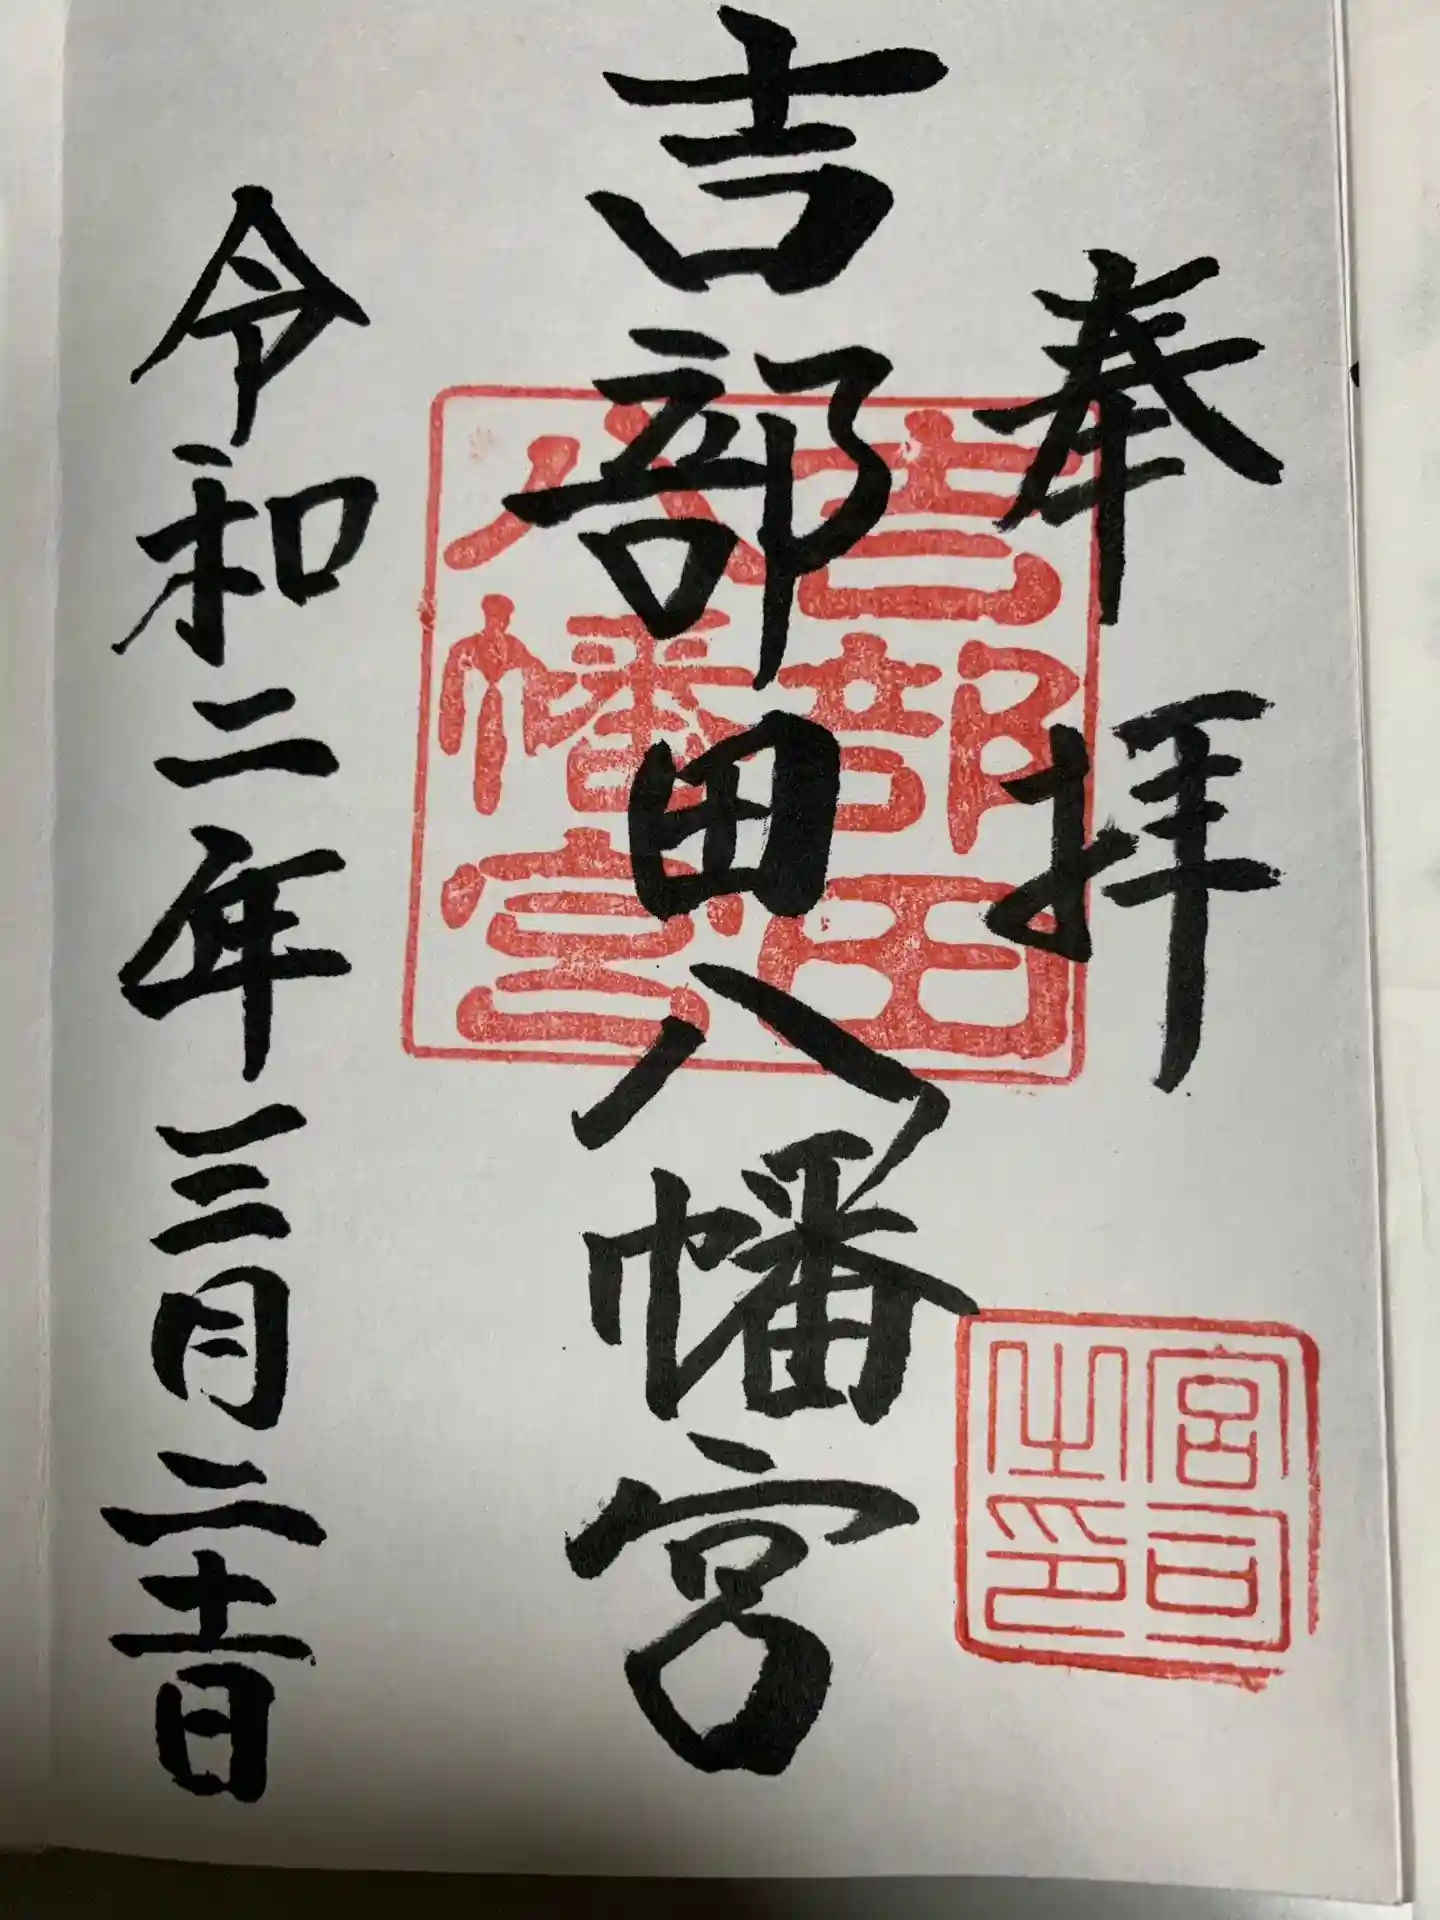 奉拝
吉部田八幡宮
令和二年三月二十一日
吉部田
八幡宮
宮司
之印